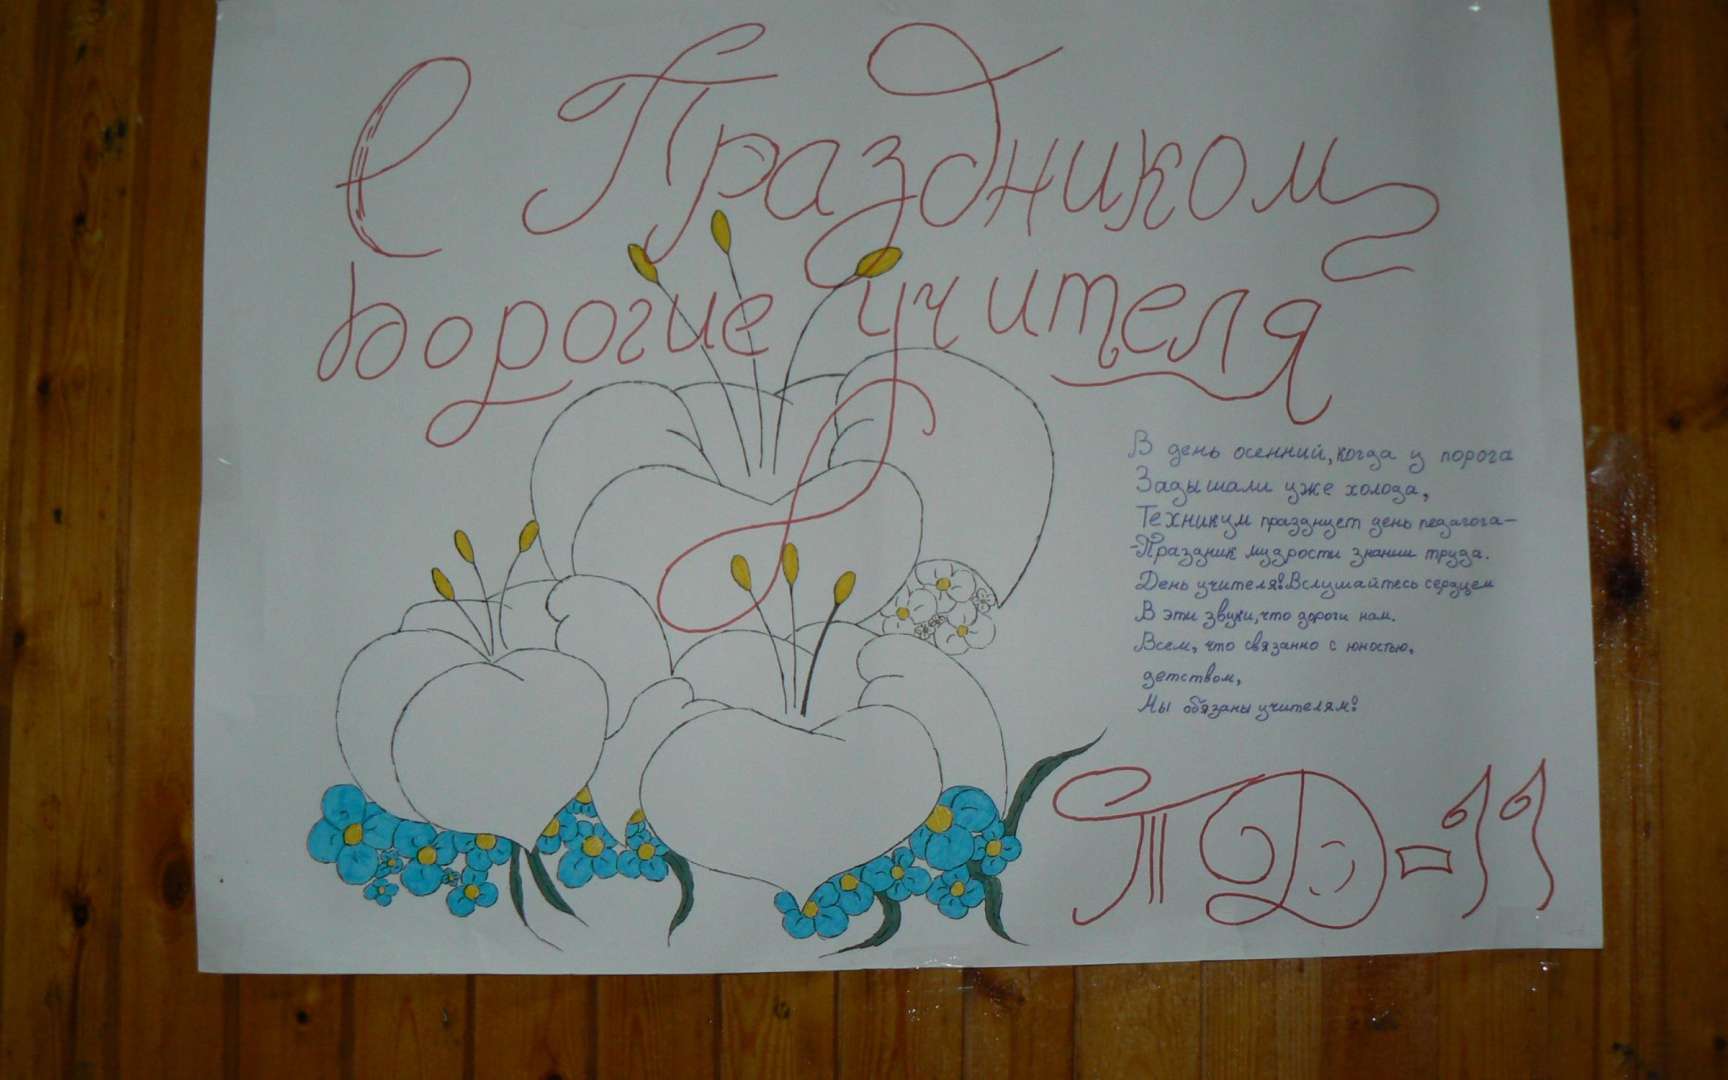 С Праздником
дорогие учителя
В день осенний, когда у порога
Задышали уже холода,
Техникум празднует день педагога-
-Праздник мудрости знании труда.
День учителя! Вслушайтесь сердцем
В эти звуки, что дороги нам.
Всем, что связанно с юностью,
детством,
Мы обязаны учителям!
ТД-11